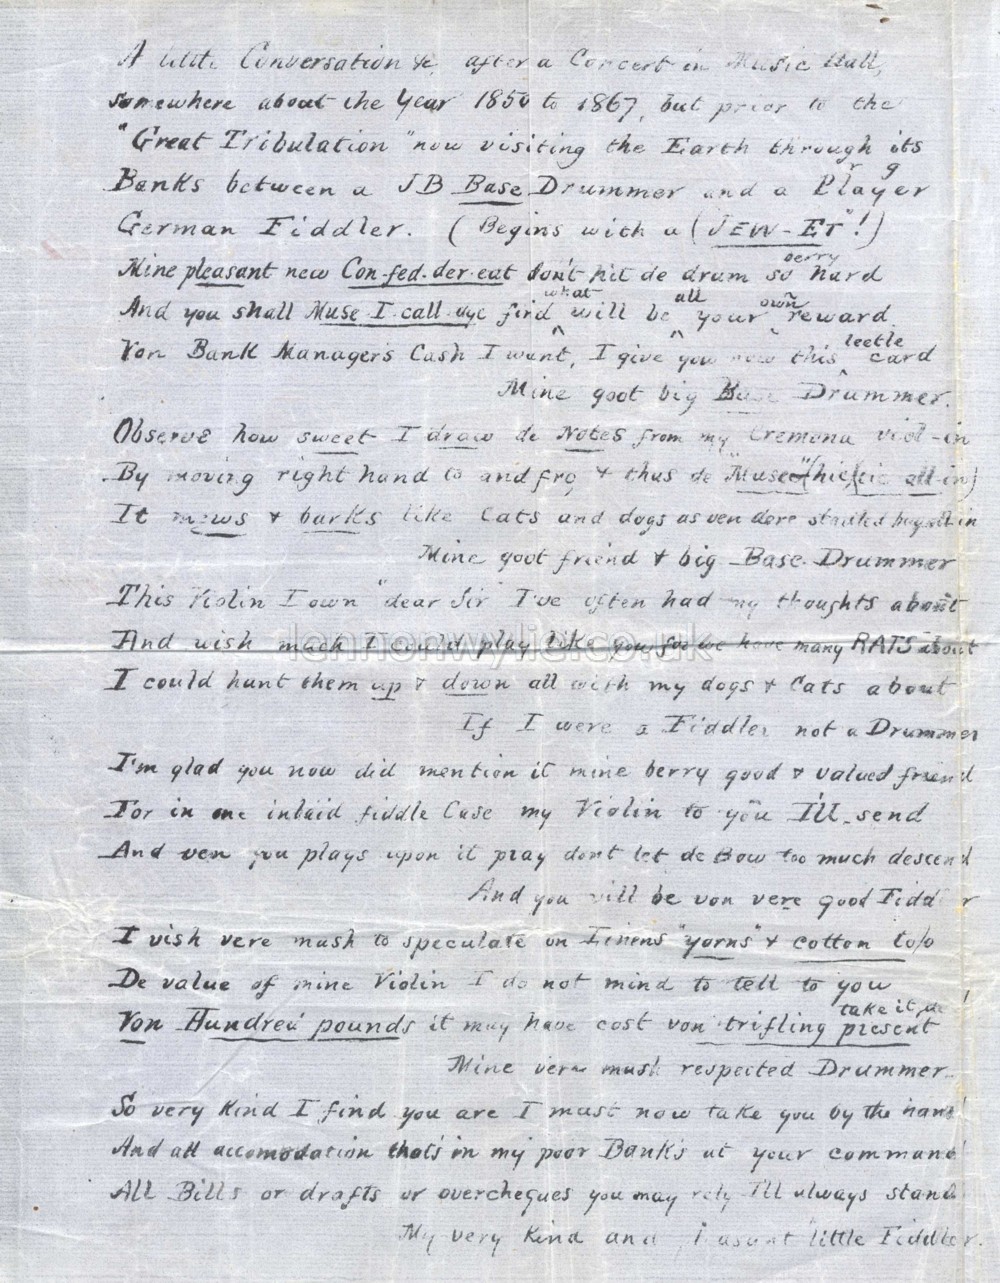 A little Conversation &c, after a Concert in Music Hall,
somewhere about the Year 1850 to 1867, but prior to the
"Great Tribulation" now visiting the Earth through its
Banks between a JB Base Drummer and a Player
r g
German Fiddler. ( Begins with a (JEW-ET"!)
Mine pleasant new Con-fed-der-eat don't hit de drum so hard
berry
And you shall Muse I call-vye find will be your reward
what all own
Von Bank Manager's Cash I want, I give you now this card
leetle
Mine goot big Base Drummer.
Observe how sweet I draw de Notes from my Cremona viol-in
By moving right hand to and fro, & thus de "Muse" (hic(tic all-in)
It mews & barks like Cats and dogs as ven dere started
Mine goot friend & big Base Drummer
This Violin I own "dear Sir I've often had my thoughts about
And wish mach I could play like you for we have many RATS about
lennonwylie.co.uk
I could hunt them up & down all with my dogs & Cats about
If I were a Fiddler not a Drummer
I'm glad you now did mention it mine berry good & valued friend
For in one inlaid fiddle Case my Violin to you I'll send
And ven you plays upon it pray dont let de Bow too much descend
And you vill be von vere good Fiddler
I vish vere mush to speculate on Linens "yarns" & cotton to/o
De value of mine Violin I do not mind to tell to you
Von Hundred pounds it may have cost von trifling present
take it de
Mine vere mush respected Drummer.
So very kind I find you are I must now take you by the hand
And all accomodation that's in my poor Bank's at your command
All Bills or drafts or overcheques you may rely I'll always stand
My very kind and pleasant "little Fiddler.